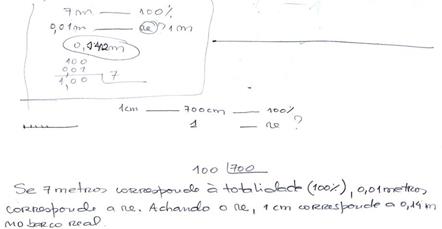 7m — 100%
0,01m — x
0,142m
100
0,01
1,00 | 7
1cm — 700cm — 100%
1 — x ?
100 | 700
Se 7 metros corresponde à totalidade (100%), 0,01 metros
corresponde a x. Achando o x, 1 cm corresponde a 0,14 m
no barco real.